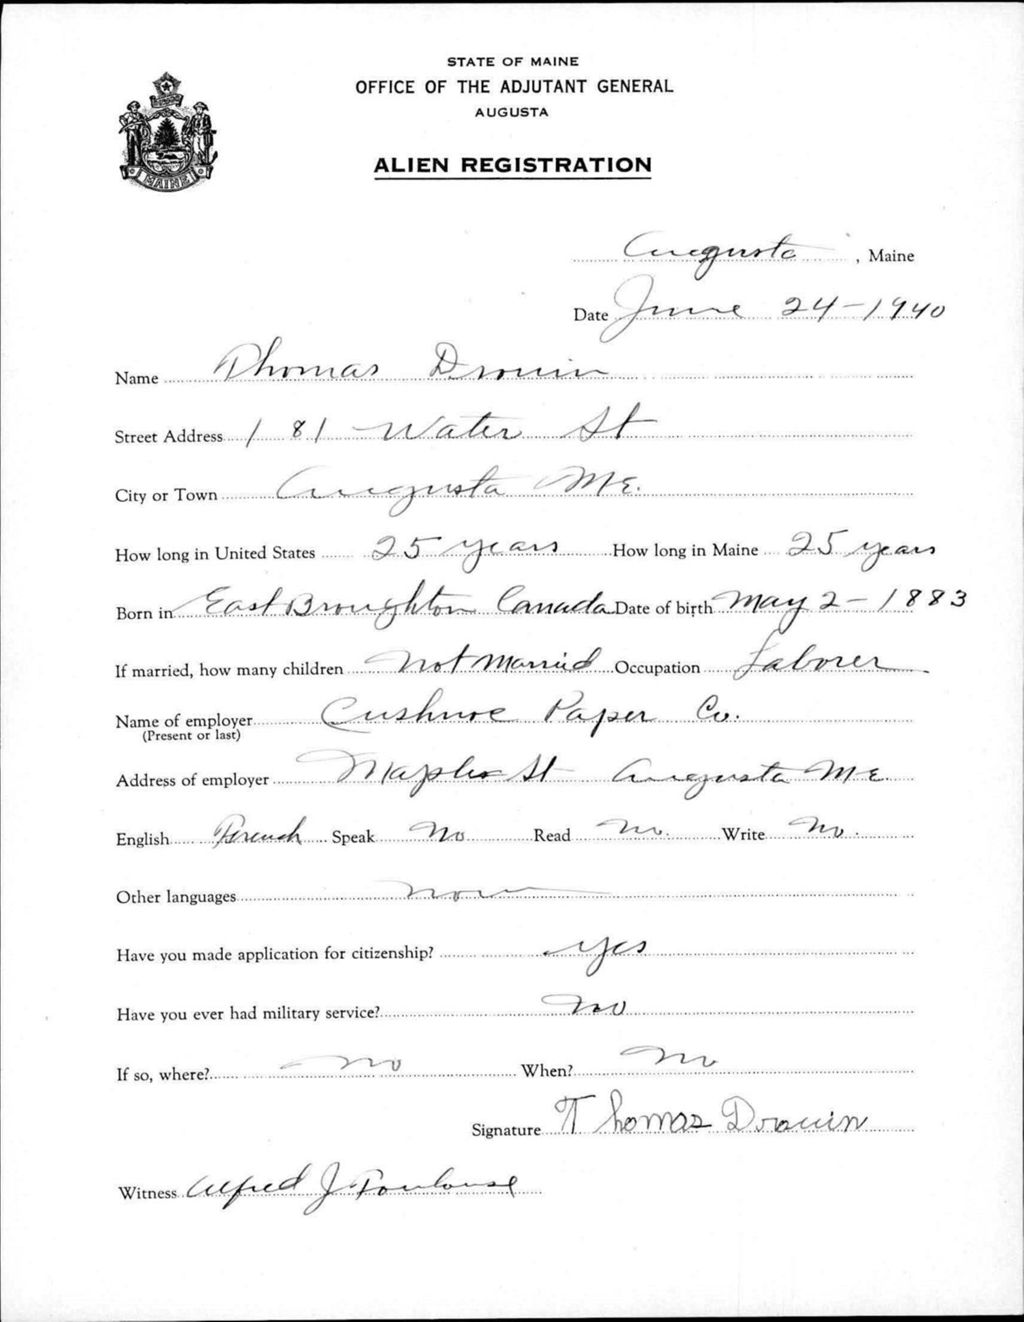 STATE OF MAINE
OFFICE OF THE ADJUTANT GENERAL
AUGUSTA
ALIEN REGISTRATION
MAINE
Augusta, Maine
Date June 24-1940
Name Thomas Drouin
Street Address 181 Water St
City or Town Augusta Me.
How long in United States 25 years How long in Maine 25 years
Born in East Broughton Canada Date of birth May 2-1883
If married, how many children Not Married Occupation Laborer
Name of employer Cushnoc Paper Co.
(Present or last)
Address of employer Maple St Augusta Me.
English French Speak No Read No. Write No.
Other languages None
Have you made application for citizenship? Yes
Have you ever had military service? No
If so, where? No When? No
Signature Thomas Drouin
Witness Alfred J Toulouse